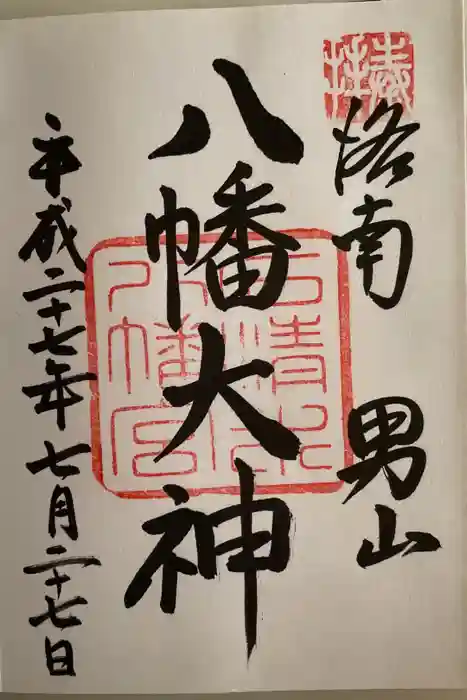 奉拝
洛南 男山
八幡大神
石清水八幡宮
平成二十七年七月二十七日